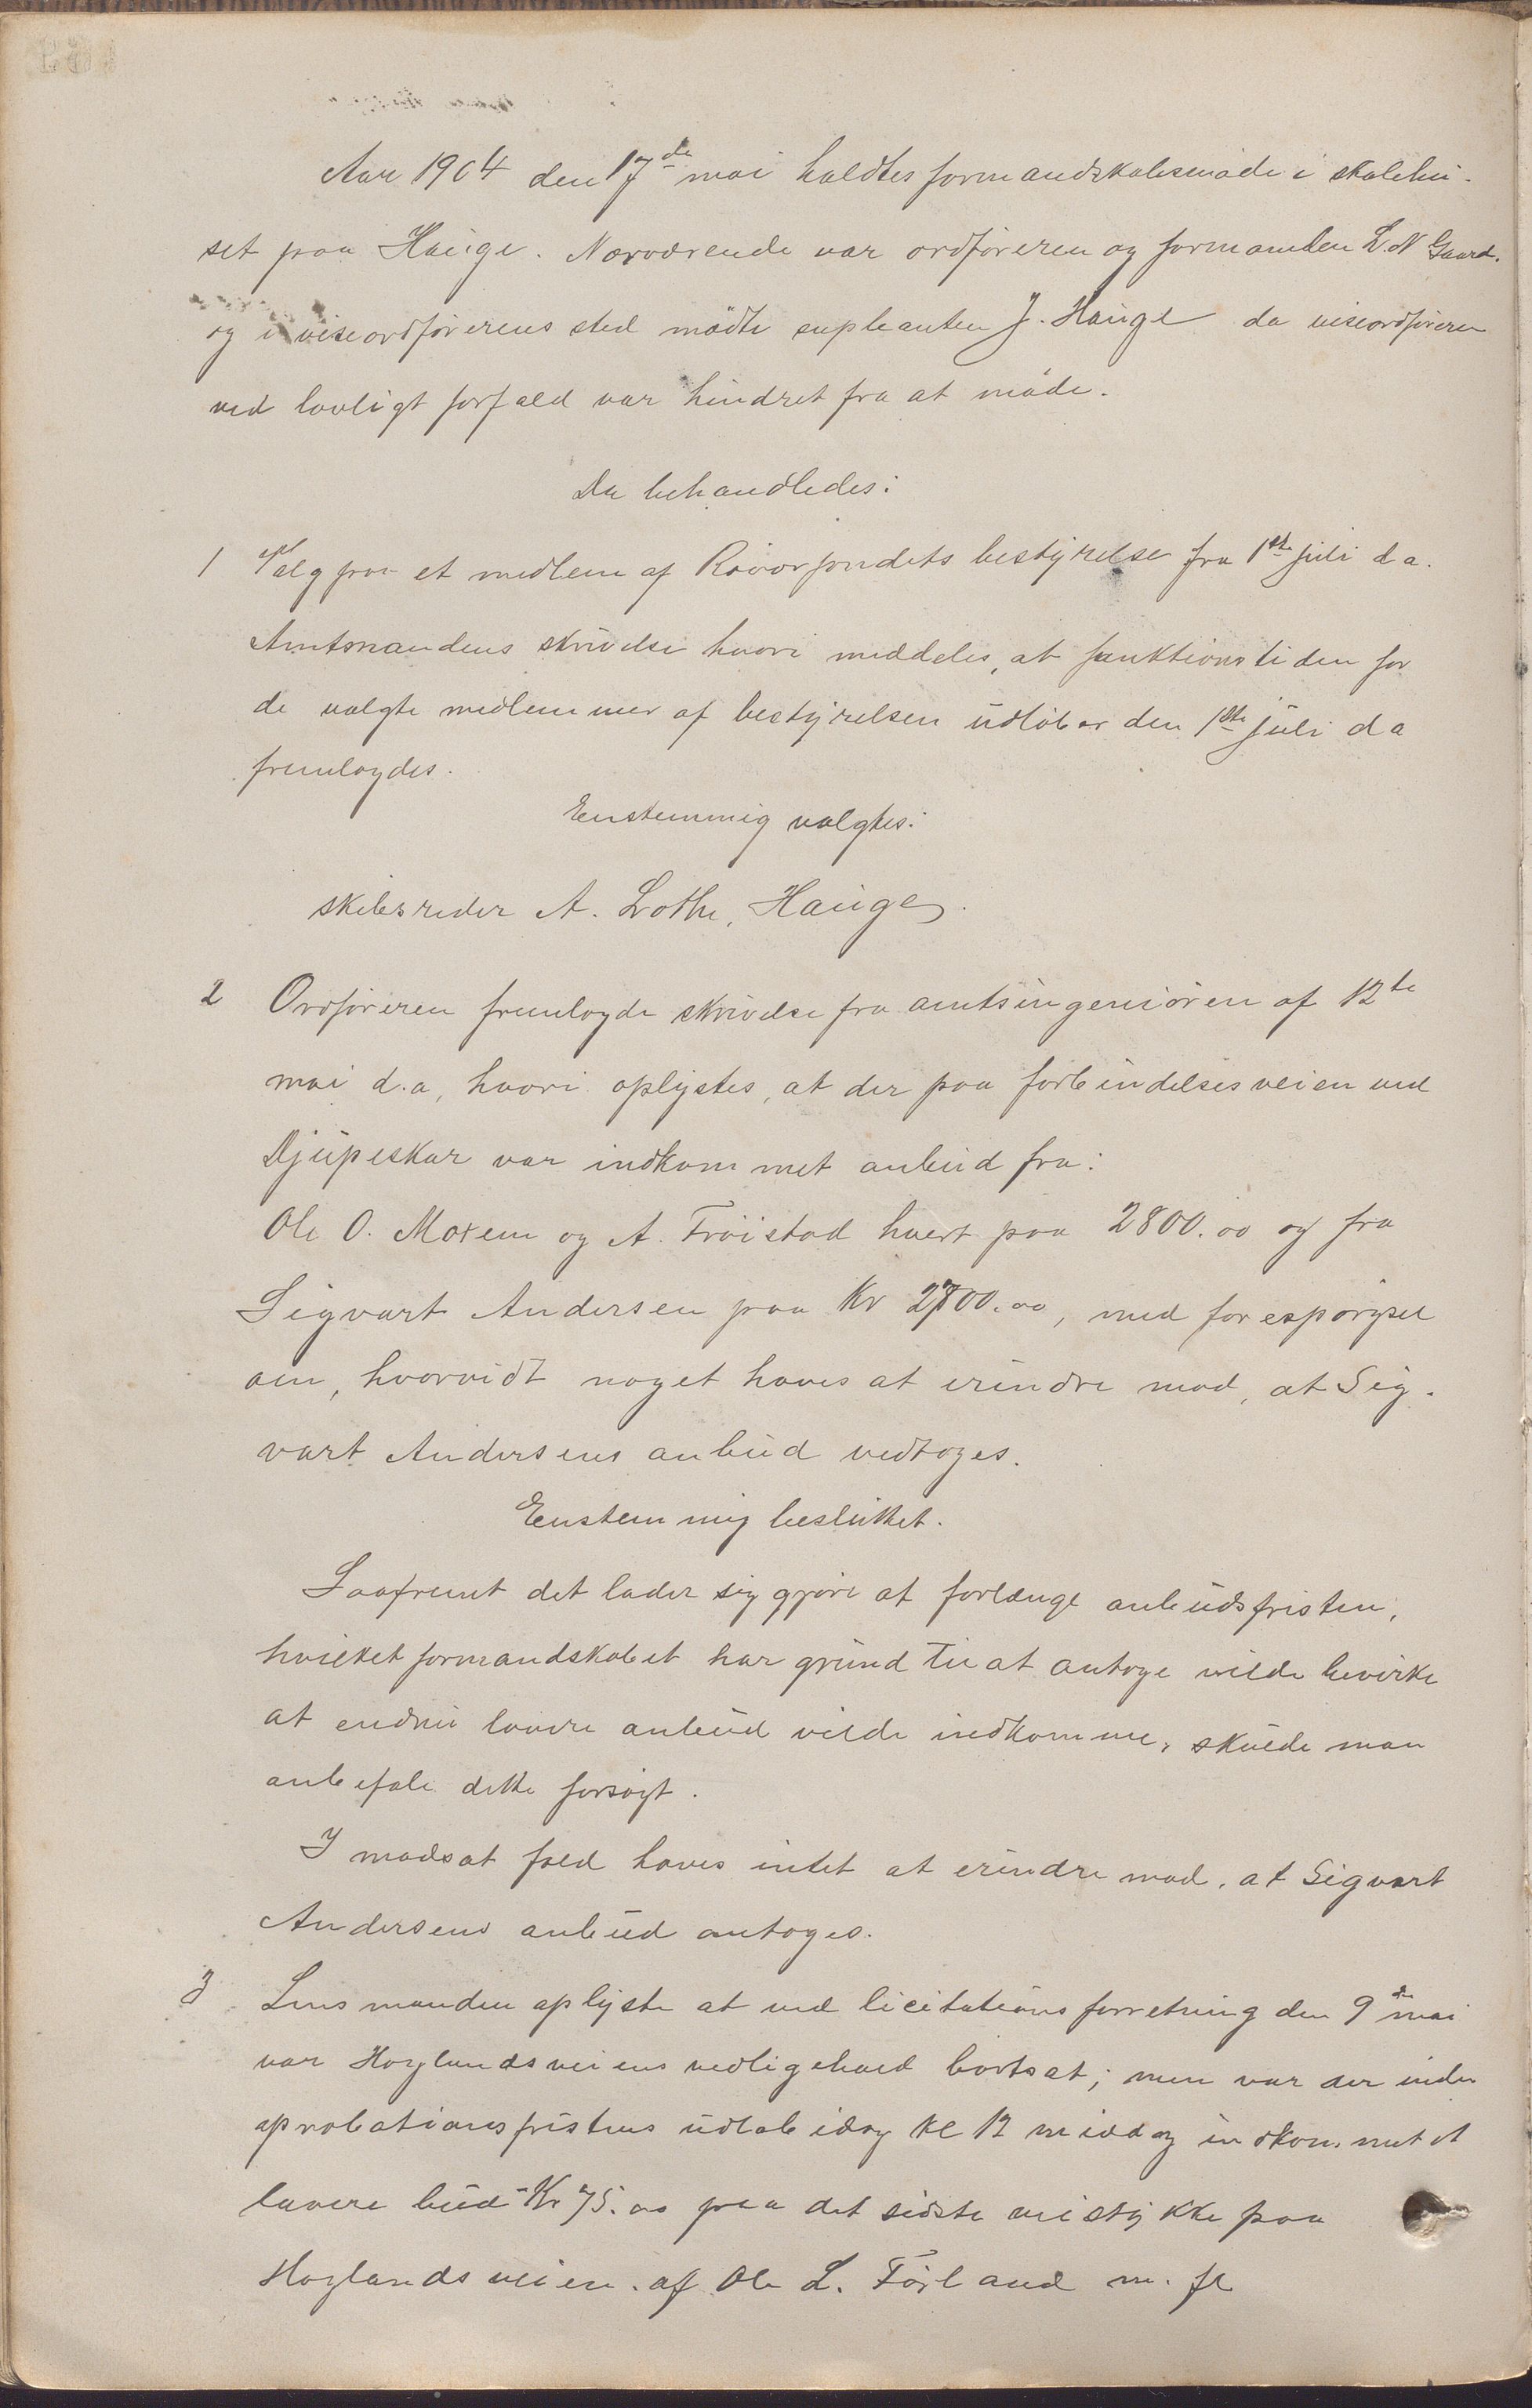 Aar 1904 den 17de mai holdtes formandskabsmöde i skolehu-
set paa Hauge. Nærværende var ordföreren og formanden L. N Gaard.
og i viseordförerens sted mödte supleanten J. Hauge da viseordföreren
ved lovligt forfald var hindret fra at möde.
Da behandledes:
1 Valg paa et medlem af Röværfondets bestyrelse fra 1ste juli d a.
Amtmandens skrivelse hvori meddeles, at funktionstiden for
de valgte medlemmer af bestyrelsen udlöber den 1ste juli d a
fremlagdes.
Enstemmig valgtes:
skibsreder A. Lothe, Hauge.
2 Ordföreren fremlagde skrivelse fra amtsingeniören af 12te
mai d.a, hvori oplystes, at der paa forbindelsesveien ved
Djupeskar var indkommet anbud fra:
Ole O. Moxem og A. Fröistad hvert paa 2800.00 og fra
Sigvart Andersen paa Kr 2700.00, med forespörgsel
om, hvorvidt noget haves at erindre mod, at Sig-
vart Andersens anbud vedtages.
Enstemmig besluttet.
Saafremt det lader sig gjöre at forlænge anbudsfristen,
hvilket formandskabet har grund til at antage vilde bevirke
at endnu lavere anbud vilde indkomme, skulde man
anbefale dette forsögt.
I modsat fald haves intet at erindre mod, at Sigvart
Andersens anbud antages.
3 Lensmanden oplyste at ved licitationsforretning den 9de mai
var Hoylandsveiens vedligehold bortsat; men var der inden
aprobationsfristens udlöb idag kl 12 middag indkommet et
lavere bud Kr 75.00 paa det sidste veistykke paa
Hoylandsveien. af Ole L. Förland m. fl